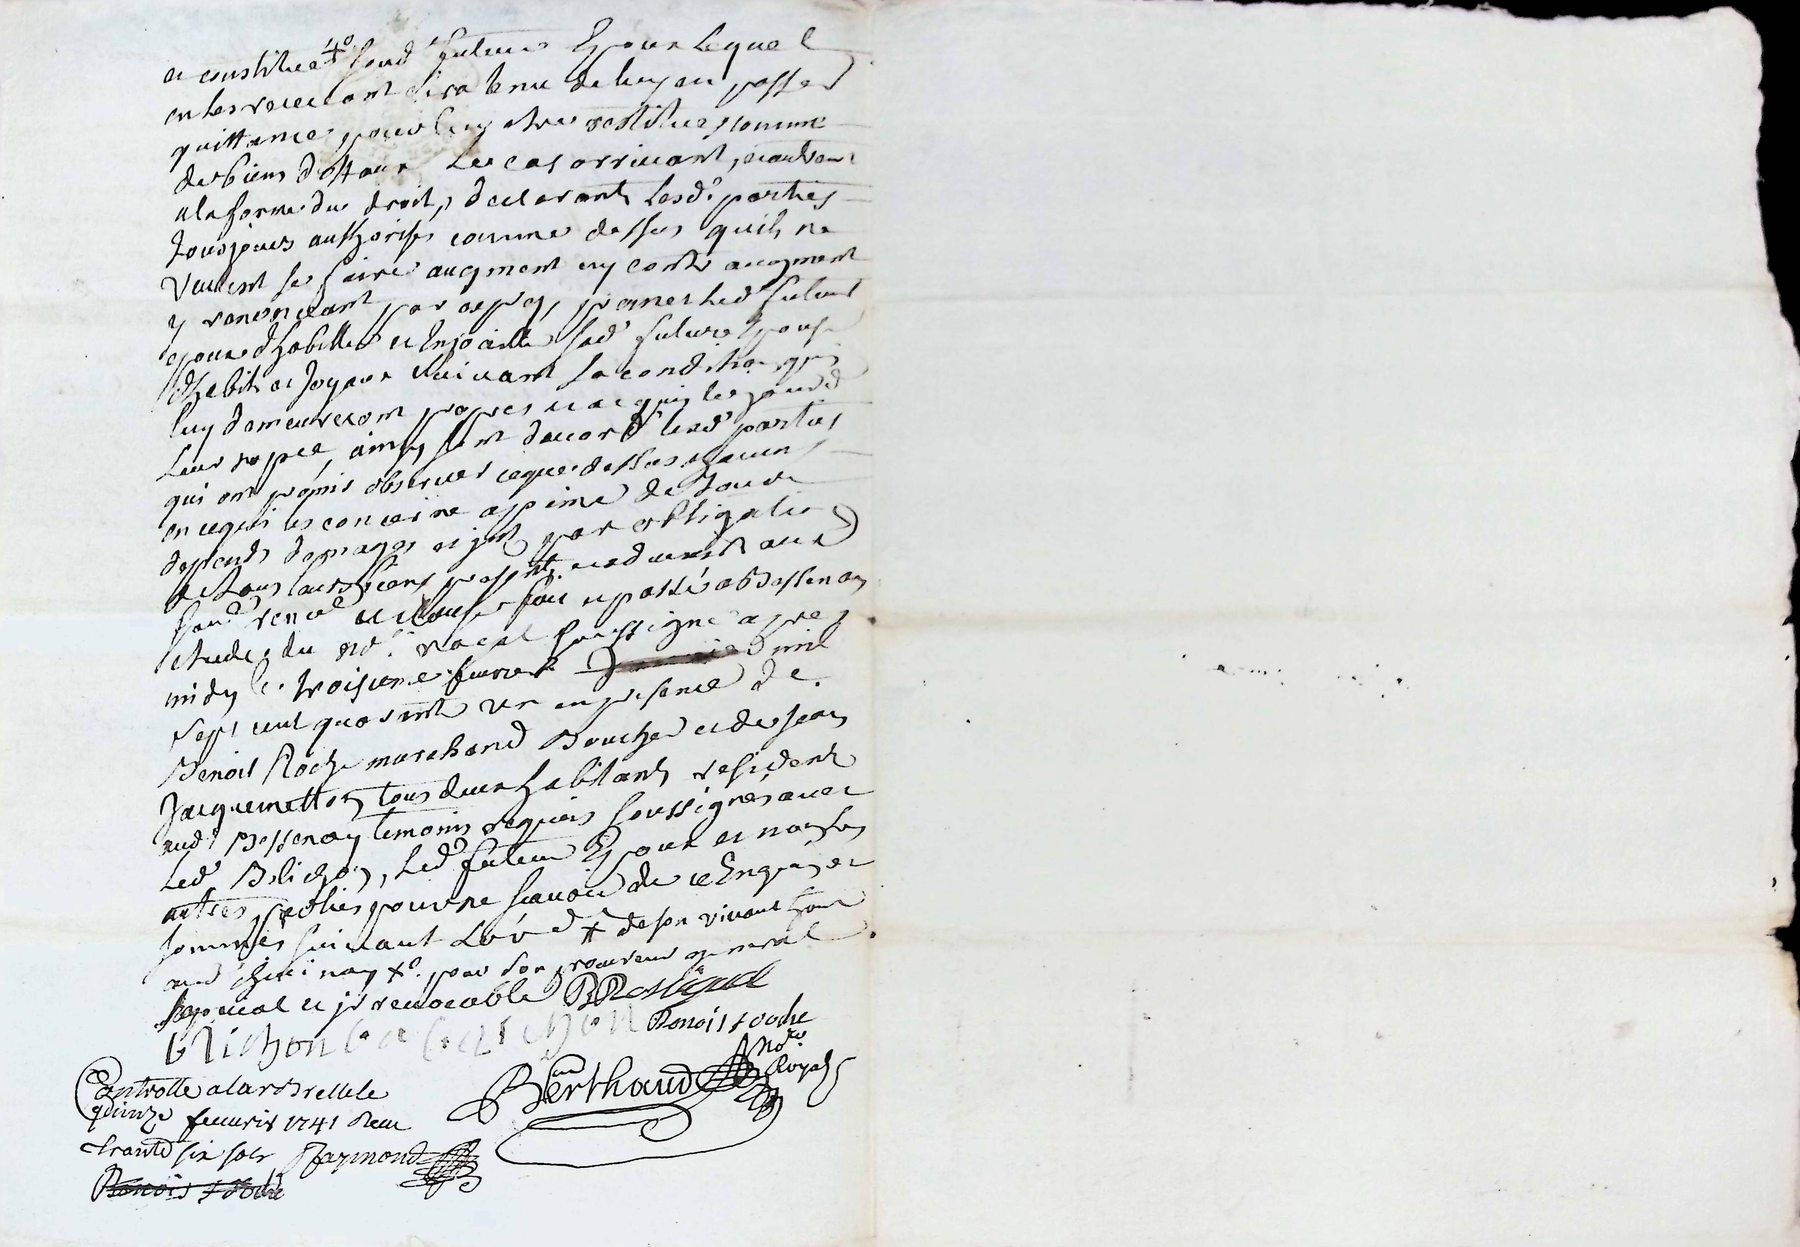 et constitue 4° sond futeur Epoux Lequel
en Les recevant sera tenu de luy en passer
quittance, pour luy etre restitue comme
des biens dottaux Le cas arrivant,
a la forme du droit, declarants Lesd. parties
tousjours authorisés comme dessus quils ne
veulent se faire augment ny contre augment
y renonceant par exprès, promet Led futeur
epoux d'habiller et Enjoailler sad future Epouse
d'habits et Joyaux suivant sa condition qui
luy demeureront propres et acquis
ainsy sont daccord lesd parties
qui ont promis observer ceque dessus chacuns
en cequi les concerne a peine de tous
depends domages et jnts par obligation
de tous leurs biens presents et advenir aux
soud renon et clauses fait et passé a Bessenay
etude du not. royal soussigné apres
midy le troisieme fevrier mil
sept cent quarante un en presence de
Benoit Roche marchand Boucher et de Jean
Jacquemetton tous deux habitants residents
aud Bessenay temoins requis soussignes avec
Led Blichon, Led futeur Epoux et non les
autres parties pour ne scavoir de ce Enquis et
sommés suivant L'ord # de son vivant
aud chevinay 4° pour son procureur general
special et jrrevocable
Blichon Benoit roche
Berthaud Not Royal
Controllé a la rBrelle le
quinze fevvrir 1741 Reçu
trante six sols Raymond
Benoit roche